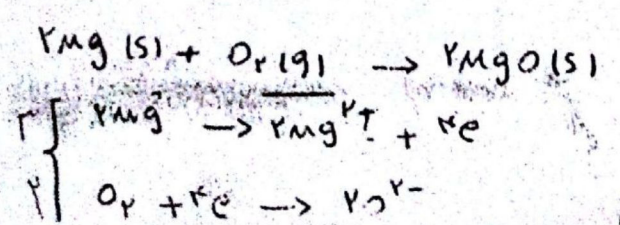 ۲Mg (s) + O₂ (g) → ۲MgO (s)
۲Mg → ۲Mg²⁺ + ۴e
O₂ + ۴e → ۲O²⁻